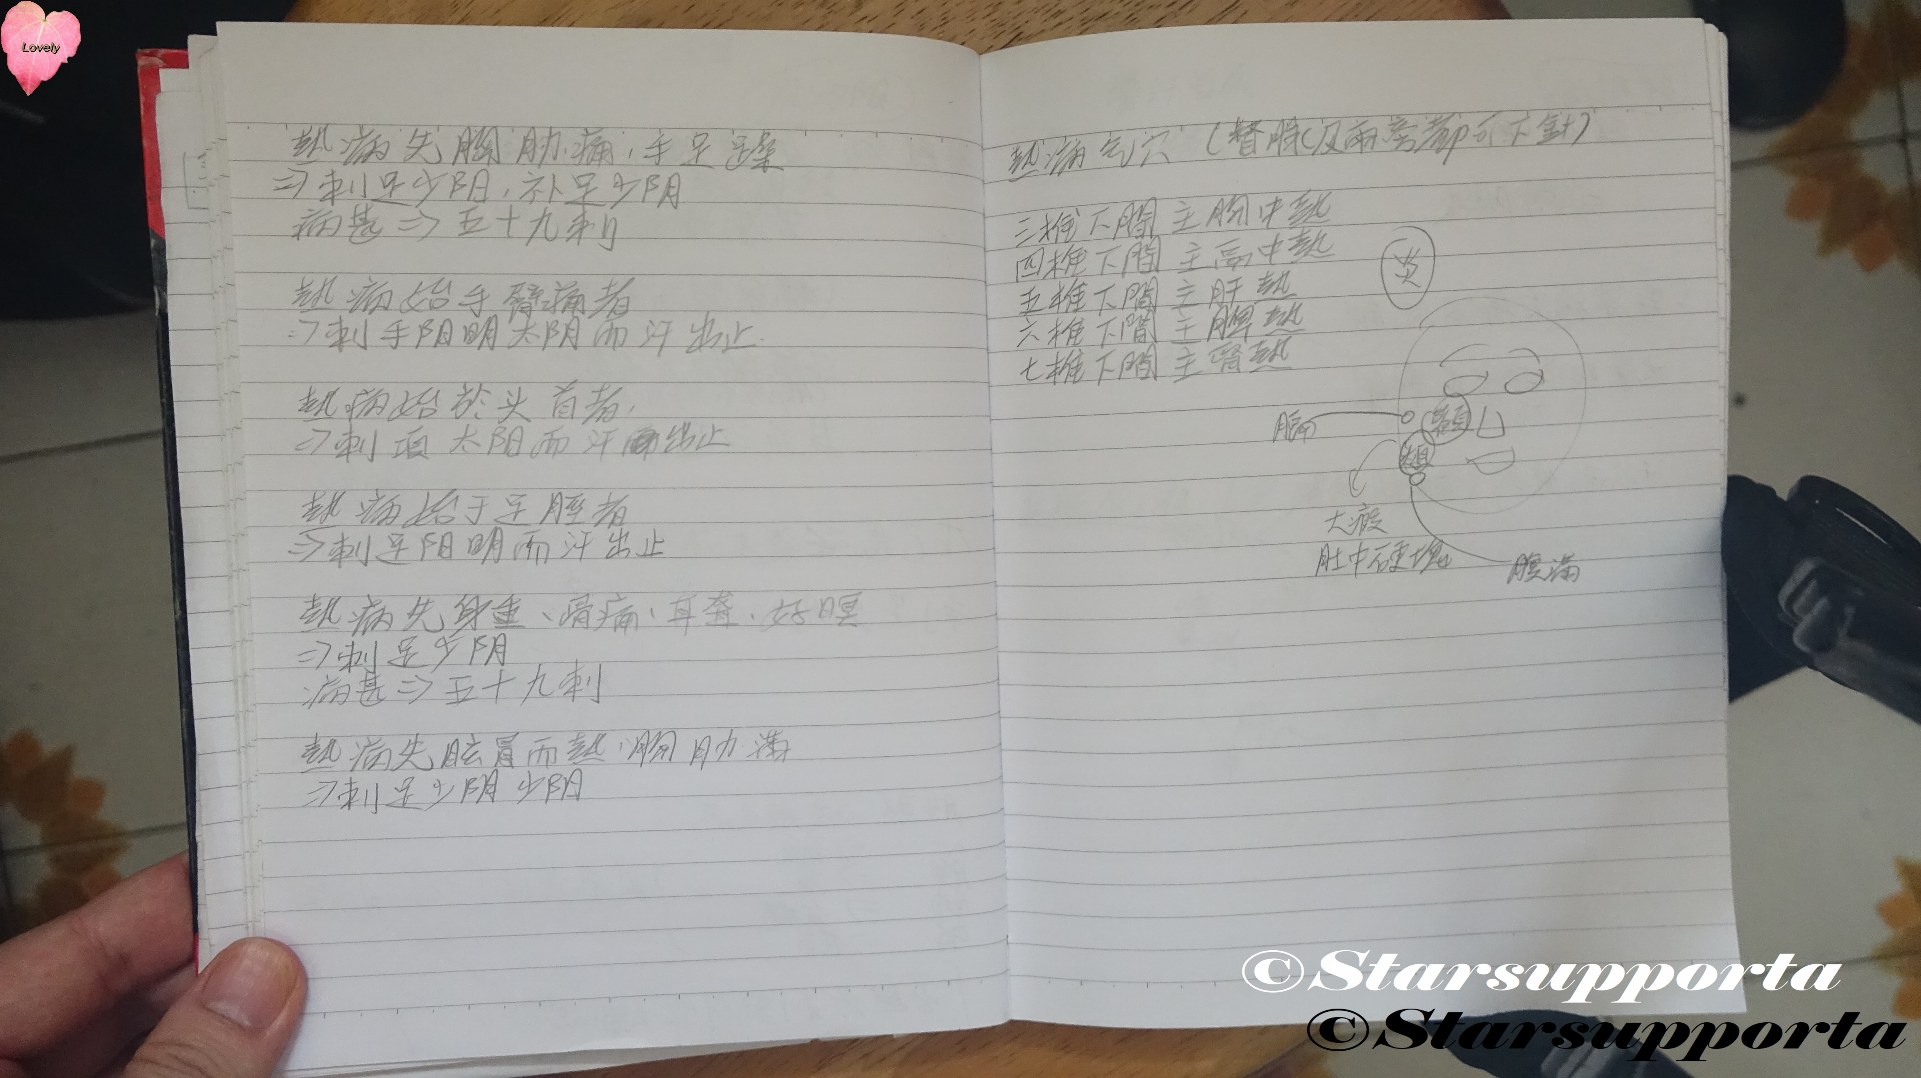 Lovely
热病先胸肋痛，手足躁
⇒刺足少阳，补足少阴
病甚⇒五十九刺
热病始手臂痛者
⇒刺手阳明太阴而汗出止.
热病始於头首者，
⇒刺项太阳而汗出止
热病始于足胫者
⇒刺足阳明而汗出止
热病先身重、骨痛、耳聋、好瞑
⇒刺足少阴
病甚⇒五十九刺
热病先眩冒而热，胸肋满
⇒刺足少阴少阳
热病气穴（督脉及兩旁都可下針）
三椎下間主胸中热
四椎下間主鬲中热
五椎下間主肝热
六椎下間主脾热
七椎下間主腎热
膈
顴
大瘕
肚中硬塊
腹滿
©Starsupporta
©Starsupporta